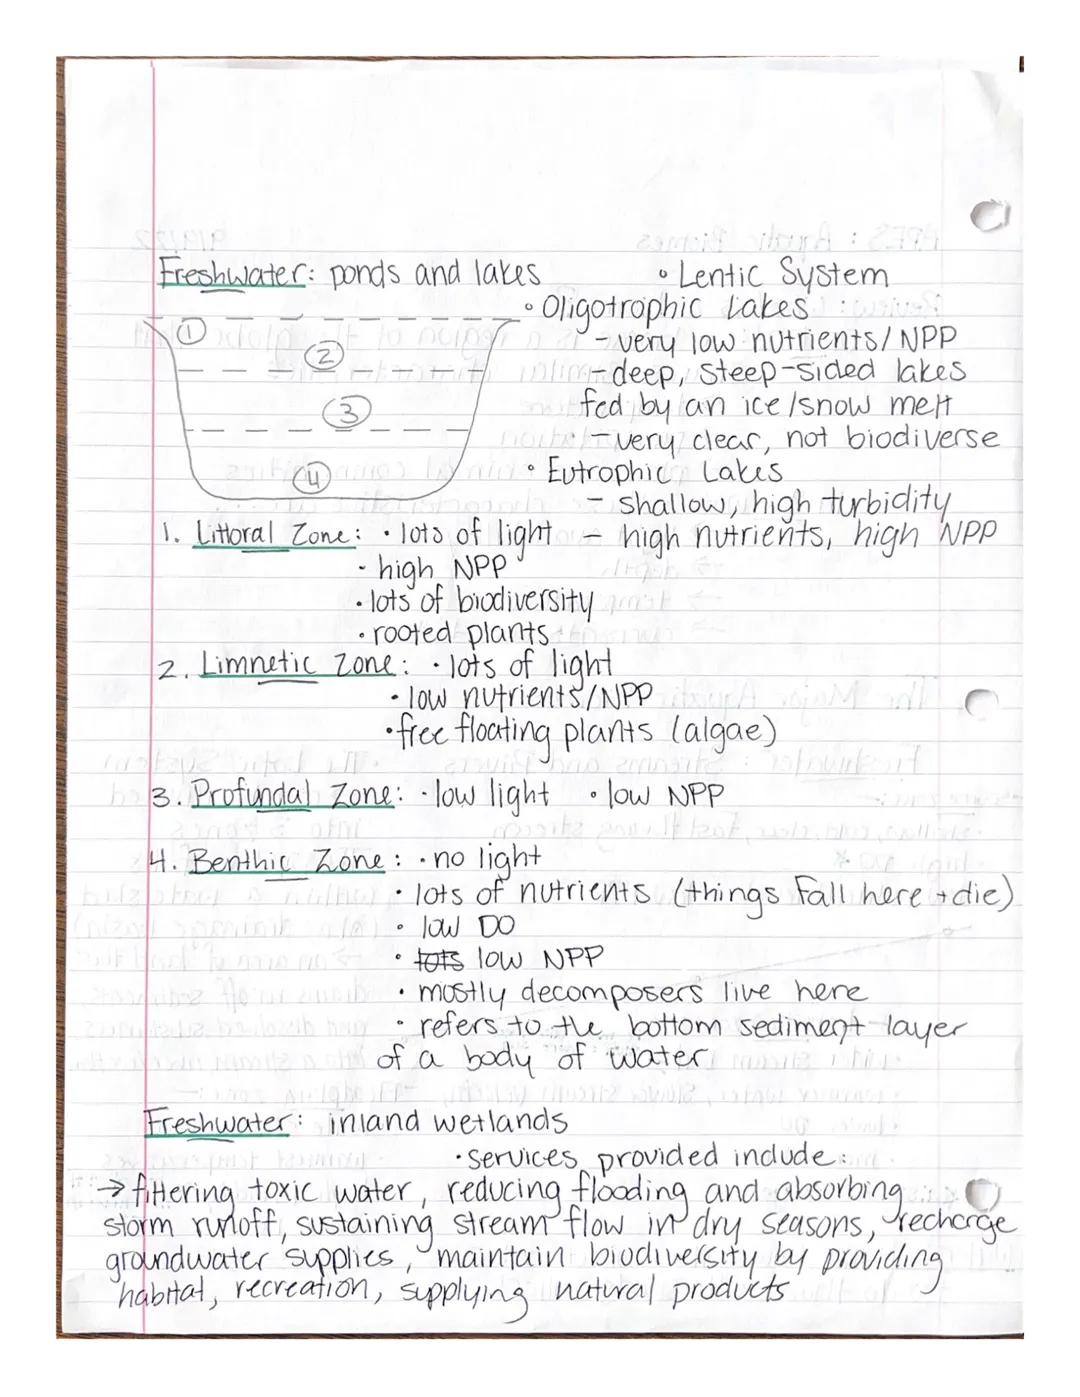 Freshwater: ponds and lakes
• Lentic System
• Oligotrophic Lakes
- very low nutrients/NPP
- deep, steep-sided lakes
fed by an ice/snow melt
- very clear, not biodiverse
• Eutrophic Lakes
- shallow, high turbidity
- high nutrients, high NPP
1
2
3
4
1. Littoral Zone: • lots of light
• high NPP
• lots of biodiversity
• rooted plants
2. Limnetic Zone: • lots of light
• low nutrients/NPP
• free floating plants (algae)
3. Profundal Zone: • low light • low NPP
4. Benthic Zone: • no light
• lots of nutrients (things fall here + die)
• low DO
• lots low NPP
• mostly decomposers live here
• refers to the bottom sediment layer
of a body of water
Freshwater: inland wetlands
• services provided include:
→ filtering toxic water, reducing flooding and absorbing
storm runoff, sustaining stream flow in dry seasons, recharge
groundwater supplies, maintain biodiversity by providing
habitat, recreation, supplying natural products